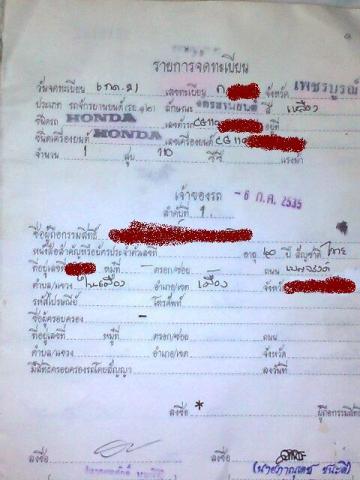 รายการจดทะเบียน
วันจดทะเบียน 6 ก.ค. 21 เลขทะเบียน ก จังหวัด เพชรบูรณ์
ประเภท รถจักรยานยนต์ (รย.๑๒) ลักษณะ จักรยานยนต์ สี เหลือง
ชนิดรถ HONDA เลขตัวรถ CG110 อยู่ที่
ชนิดเครื่องยนต์ HONDA เลขเครื่องยนต์ CG110
จำนวน 1 สูบ 110 ซีซี แรงม้า
เจ้าของรถ - 6 ก.ค. 2535
ลำดับที่ 1.
ชื่อผู้ถือกรรมสิทธิ์
หนังสือสำคัญหรือบัตรประจำตัวเลขที่ อายุ ๒๐ ปี สัญชาติ ไทย
ที่อยู่เลขที่ หมู่ที่ - ตรอก/ซอย ถนน
ตำบล/แขวง ในเมือง อำเภอ/เขต เมือง จังหวัด
รหัสไปรษณีย์ โทรศัพท์
ชื่อผู้ครอบครอง -
ที่อยู่เลขที่ หมู่ที่ ตรอก/ซอย ถนน
ตำบล/แขวง อำเภอ/เขต จังหวัด
มีสิทธิครอบครองรถโดยสัญญา ลงวันที่
ลงชื่อ * ผู้ถือกรรมสิทธิ์
ลงชื่อ ลงชื่อ